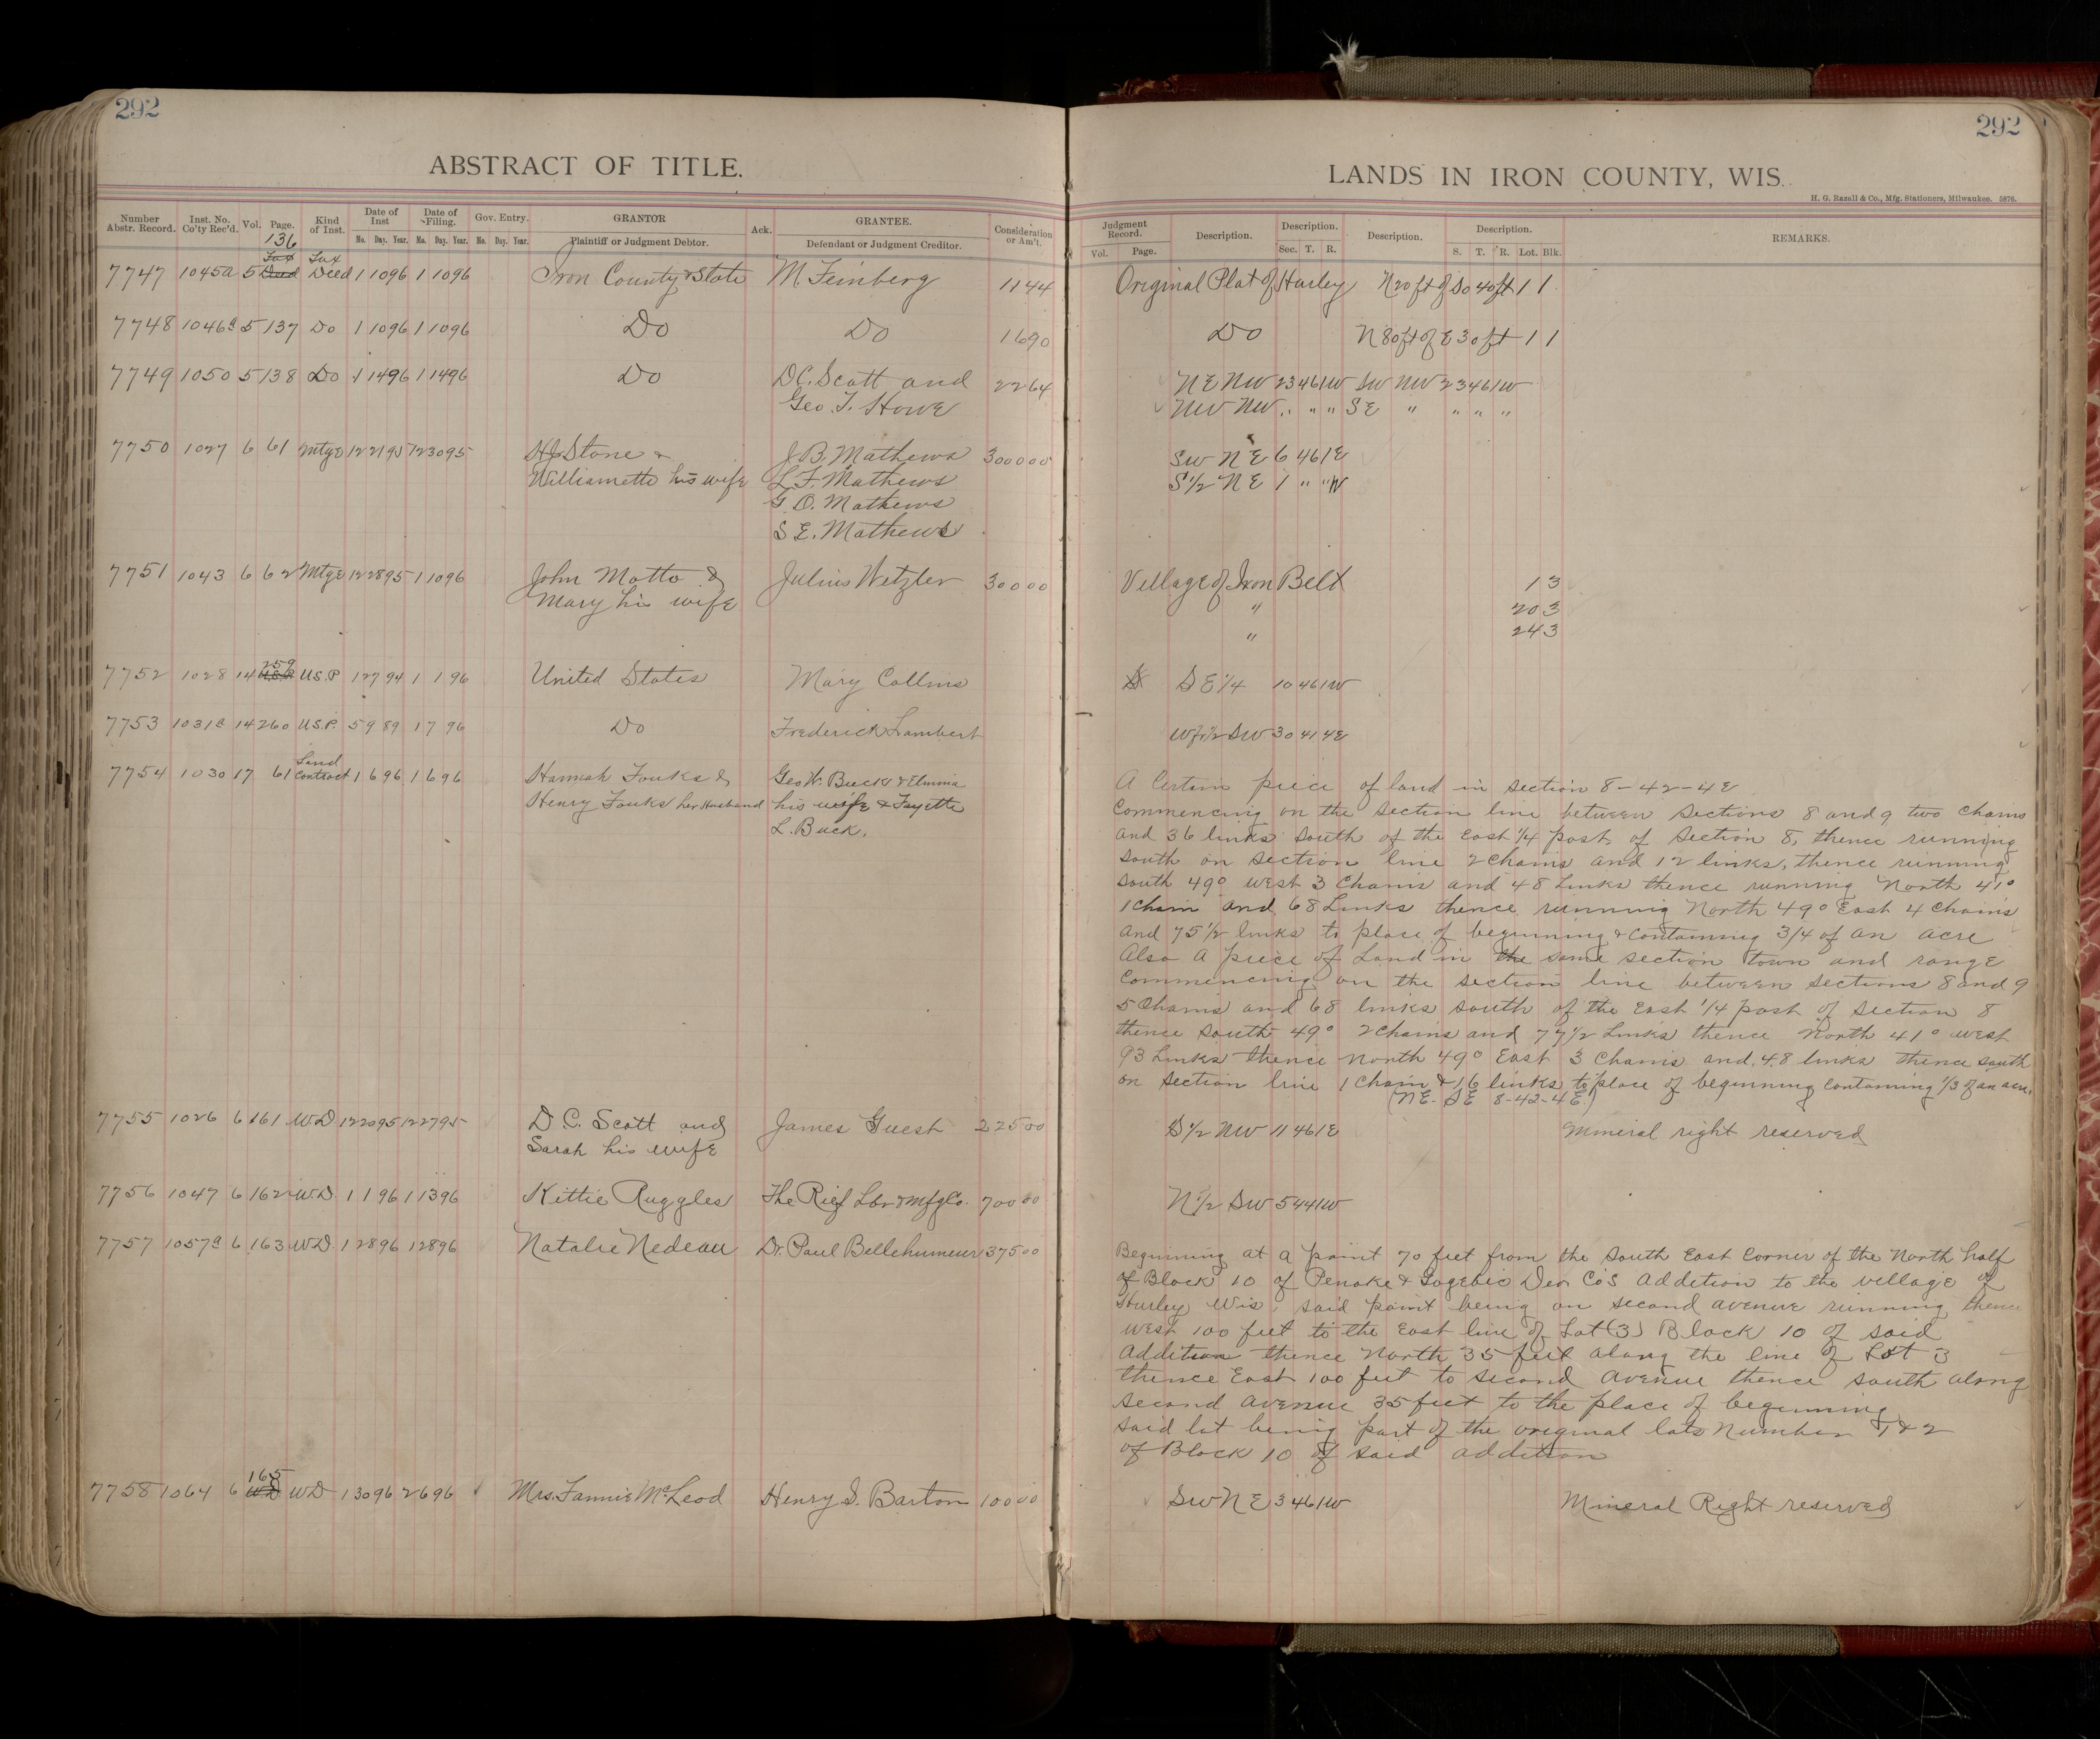 292
ABSTRACT OF TITLE.
Number Abstr. Record. Inst. No. Co'ty Rec'd. Vol. Page. Kind of Inst. Date of Inst Mo. Day. Year. Date of Filing. Mo. Day. Year. Gov. Entry. Mo. Day. Year. GRANTOR Plaintiff or Judgment Debtor. Ack. GRANTEE. Defendant or Judgment Creditor. Consideration or Am't.
136
Tax Tax
7747 1045a 5 Deed Deed 1 10 96 1 10 96 Iron County & State M Feinberg 11 44
7748 1046a 5 137 Do 1 10 96 1 10 96 Do Do 16 90
7749 1050 5 138 Do 1 14 96 1 14 96 Do D.C. Scott and 22 64
Geo. T. Howe
7750 1027 6 61 Mtge 12 21 95 12 30 95 H J Stone & J. B. Mathews 3000 00
Williamette his wife L. F. Mathews
G. O. Mathews
S E. Mathews
7751 1043 6 62 Mtge 12 28 95 1 10 96 John Motto & Julius Wetzler 300 00
Mary his wife
259
7752 1028 14 U.S.P U.S.P 1 27 94 1 1 96 United States Mary Collins
7753 1031a 14 260 U.S.P. 5 9 89 1 7 96 Do Frederick Lambert
Land
7754 1030 17 61 Contract 1 6 96 1 6 96 Hannah Fouks & Geo W. Buck & Elmina
Henry Fouks her Husband his wife & Fayette
L. Buck.
7755 1026 6 161 W.D 12 20 95 12 27 95 D C. Scott and James Guest 225 00
Sarah his wife
7756 1047 6 162 W.D. 1 1 96 1 13 96 Kittie Ruggles The Rief Lbr & Mfg Co. 700 00
7757 1057a 6 163 W.D. 1 28 96 1 28 96 Natalie Nedeau Dr. Paul Bellehumeur 375 00
165
7758 1064 6 W D W D 1 30 96 2 6 96 Mrs. Fannie McLeod Henry S. Barton 100 00
292
LANDS IN IRON COUNTY, WIS.
H. G. Razall & Co., Mfg. Stationers, Milwaukee. 5876.
Judgment Record. Vol. Page. Description. Description. Sec. T. R. Description. Description. S. T. R. Lot. Blk. REMARKS.
Original Plat of Hurley N 20 ft of So 40 ft 1 1
Do N 80 ft of E 30 ft 1 1
NE NW 23 46 1W SW NW 23 46 1W
NW NW " " " SE " " " "
SW NE 6 46 1E
S 1/2 NE 1 " " W
Village of Iron Belt 1 3
" 20 3
" 24 3
S SE 1/4 10 46 1W
W fr 1/2 SW 30 41 4E
A Certain piece of land in section 8-42-4E
Commencing on the section line between sections 8 and 9 two chains
and 36 links south of the East 1/4 post of section 8, thence running
south on section line 2 chains and 12 links, thence running
south 49° west 3 Chains and 48 Links thence running North 41°
1 Chain and 68 Links thence running North 49° East 4 Chains
and 75 1/2 links to place of beginning & containing 3/4 of an acre
Also A piece of Land in the same section town and range
Commencing on the section line between sections 8 and 9
5 Chains and 68 links south of the East 1/4 post of section 8
thence south 49° 2 chains and 77 1/2 Links thence North 41° west
93 Links thence North 49° East 3 Chains and 48 links thence south
on section line 1 Chain & 16 links to place of beginning containing 1/3 of an acre.
(NE. SE 8-42-4E.)
S 1/2 NW 11 46 1E Mineral right reserved
N 1/2 SW 5 44 1W
Beginning at a point 70 feet from the South East Corner of the North half
of Block 10 of Penoke & Gogebic Dev. Co's addition to the village of
Hurley Wis. said point being on second avenue running thence
west 100 feet to the East line of Lot (3) Block 10 of said
addition thence North 35 feet along the line of Lot 3
thence East 100 feet to second avenue thence south along
second avenue 35 feet to the place of beginning
said lot being part of the original lots Number 1 & 2
of Block 10 of said addition
SW NE 3 46 1W Mineral Right reserved